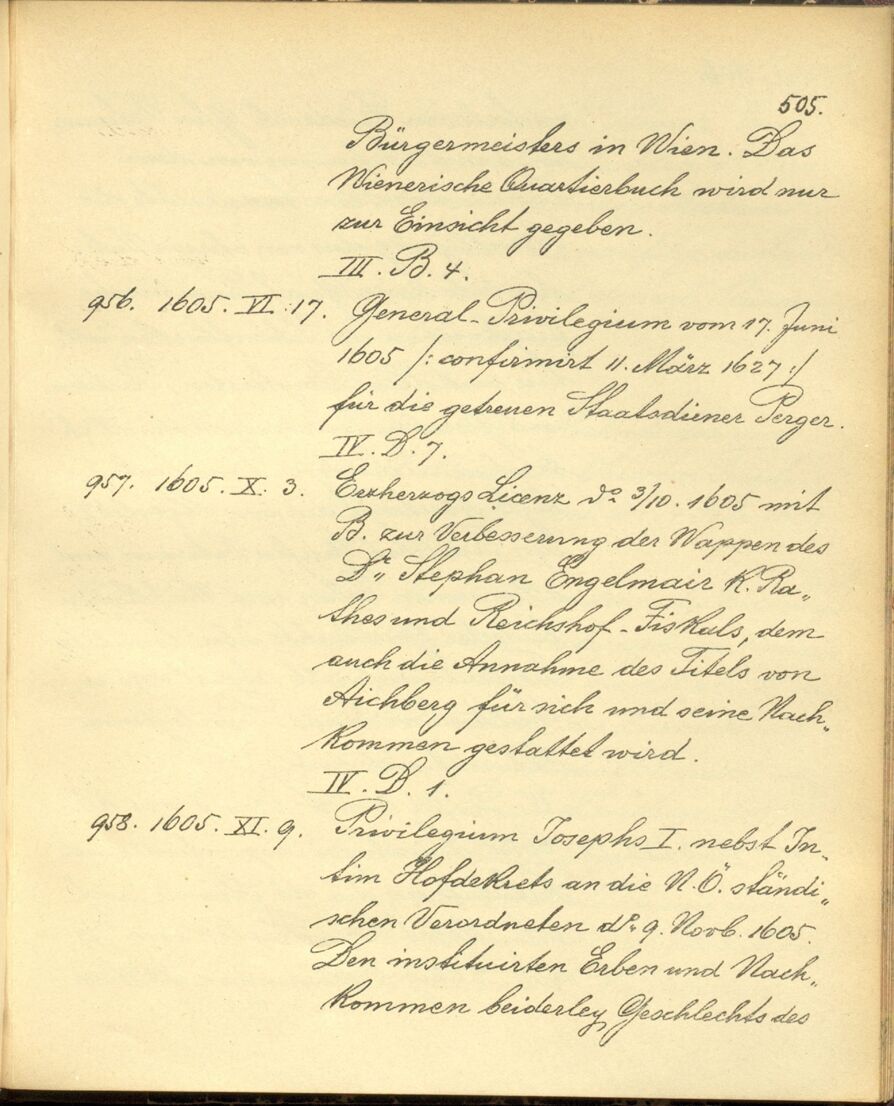 505.
Bürgermeisters in Wien. Das
Wienerische Quartierbuch wird nur
zur Einsicht gegeben.
III. B. 4.
956. 1605. VI. 17. General-Privilegium vom 17. Juni
1605 /: confirmirt 11. März 1627 :/
für die getreuen Staatsdiener Perger.
IV. D. 7.
957. 1605. X. 3. Erzherzogs Licenz do 3/10. 1605 mit
B. zur Verbesserung der Wappen des
Dr. Stephan Engelmair K. Ra„
thes und Reichshof-Fiskals, dem
auch die Annahme des Titels von
Aichberg für sich und seine Nach„
kommen gestattet wird.
IV. D. 1.
958. 1605. XI. 9. Privilegium Josephs I. nebst In„
tim Hofdekrets an die N.Ö. ständi„
schen Verordneten do. 9. Novb. 1605.
Den instituirten Erben und Nach„
kommen beiderley Geschlechts des